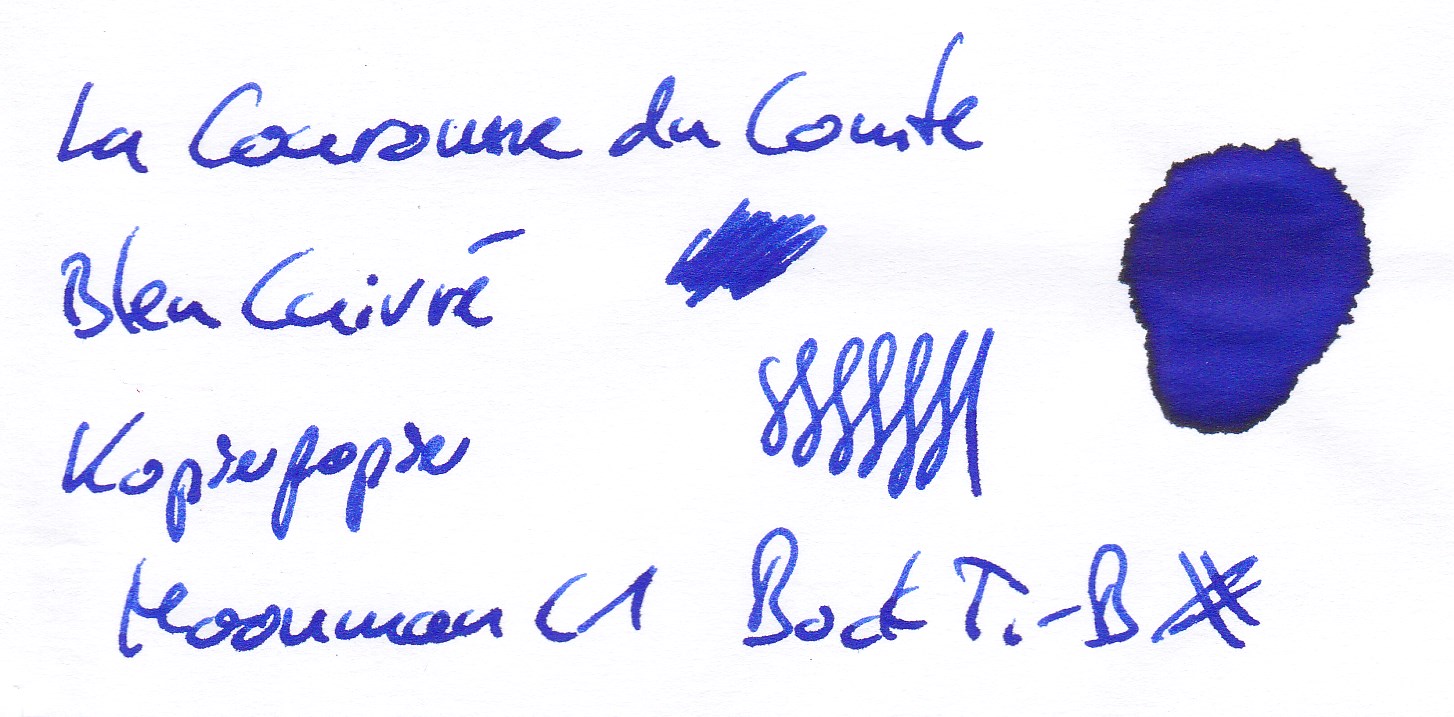 La Couronne du Comte
Bleu Cuivré
Kopierpapier
Moonman C1 Bock Ti-B #